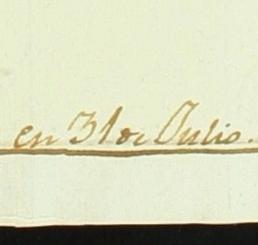 en 31 de Julio.